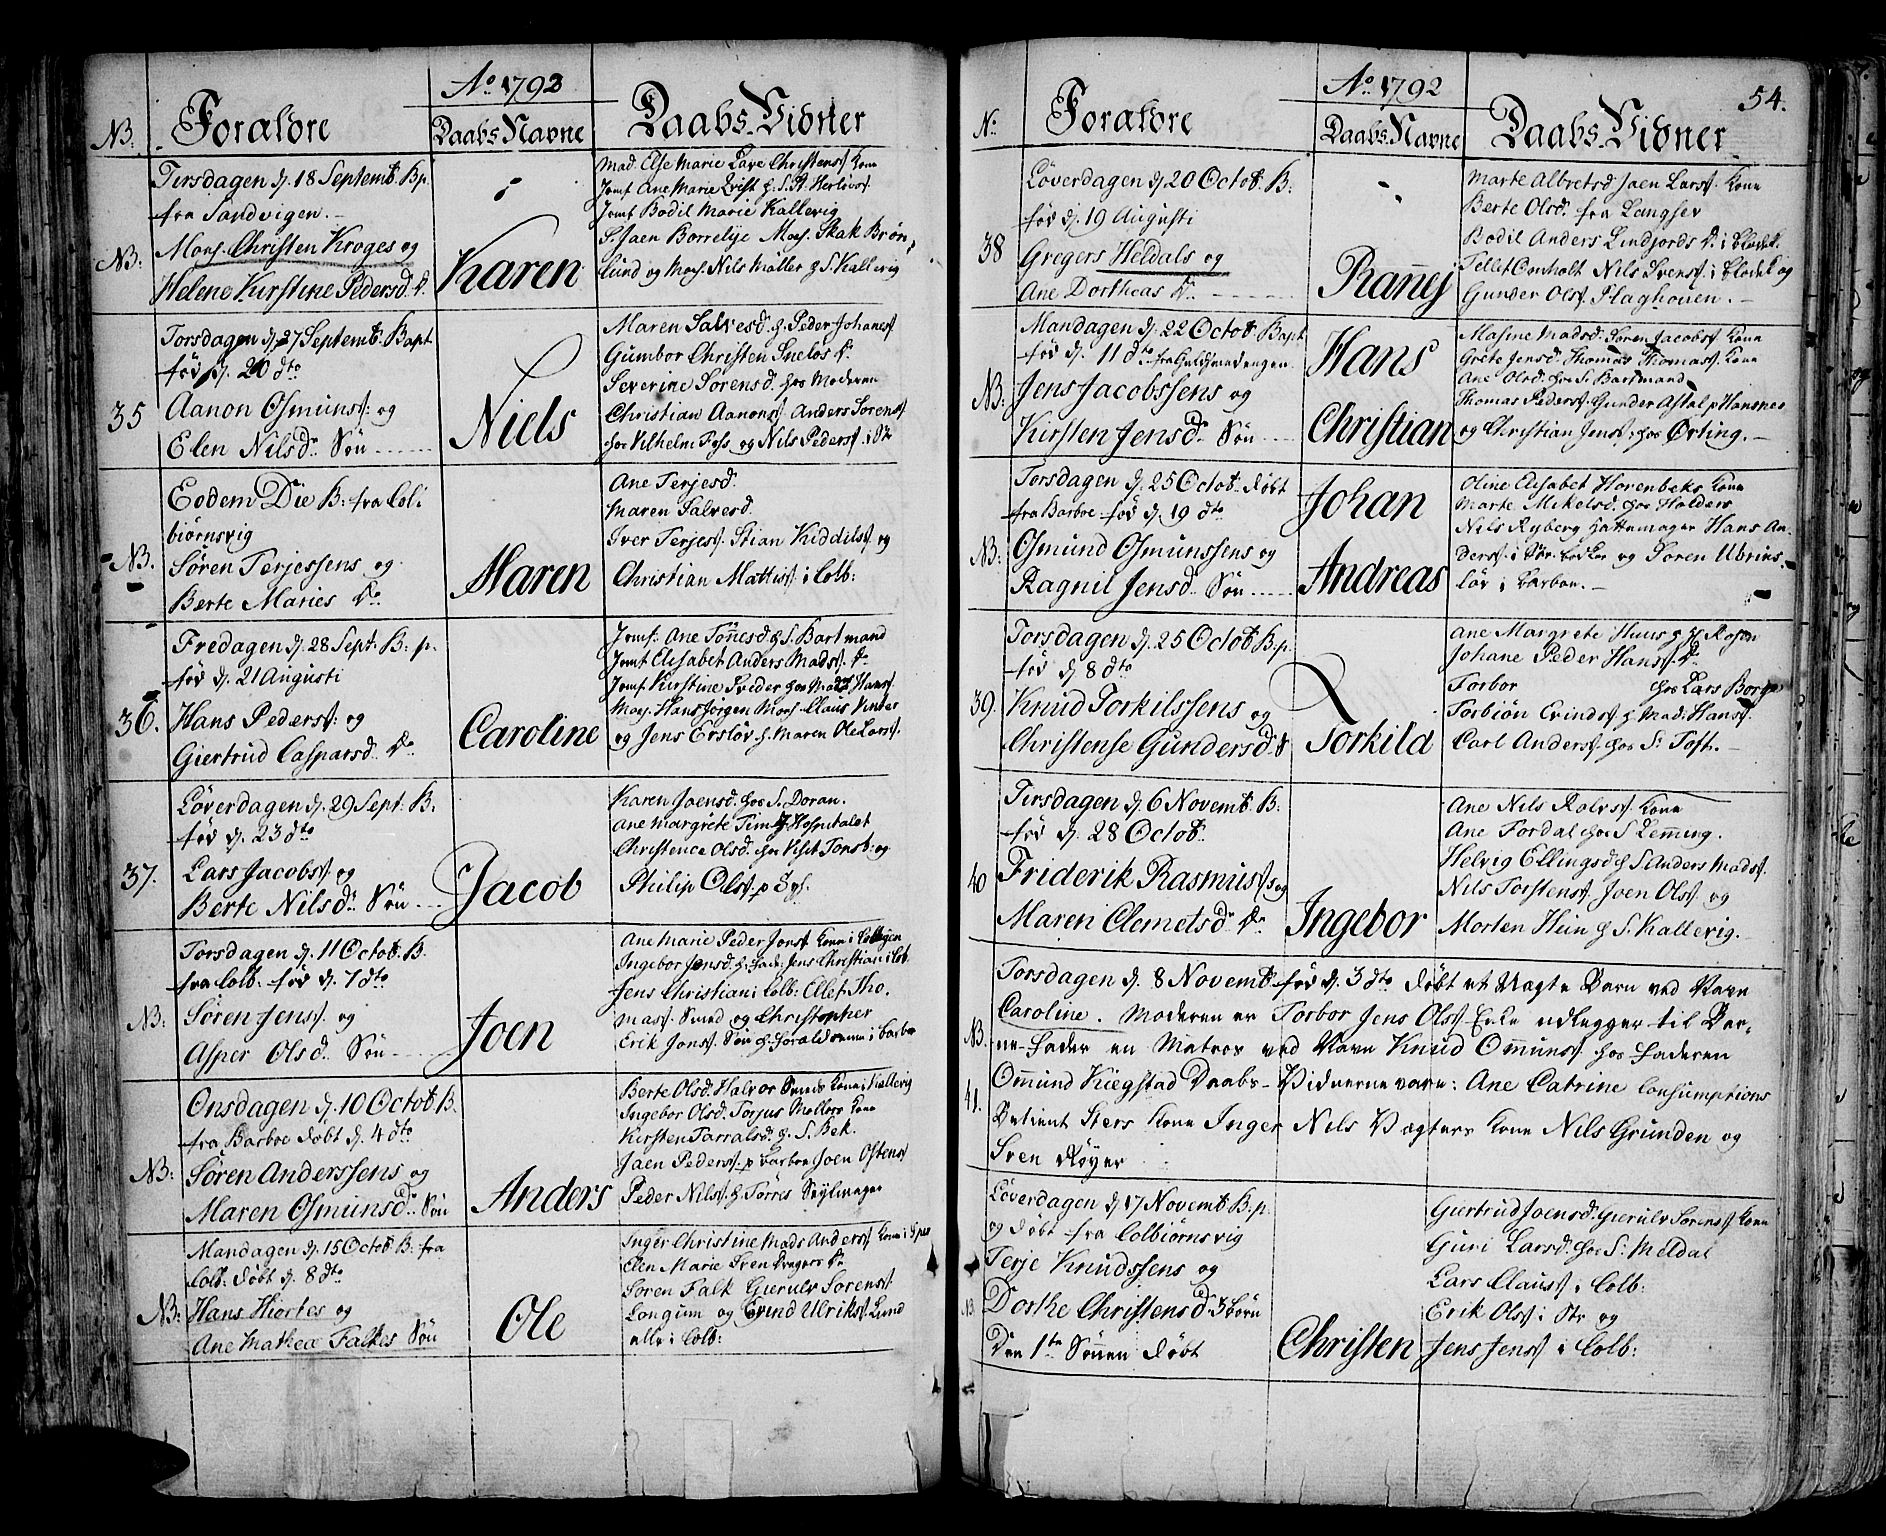 Aº 1792
NB.
Forældre
Daabs-Navne
Daabs-Vidner
Tirsdagen d. 18 Septemb. B.p.
fra Sandvigen.
NB: Mons. Christen Kroges og
Helene Kirstine Pedersd. Dr.
Karen
Mad. Else Marie Christens. Kone
Jomf. Ane Marie Qvist h. S. St. Herlovs.
Jomf. Bodil Marie Kallevig
S. Jaen Borrelye Mons. Skak Brøn-
lund og Mons. Nils Møller h. S. Kallevig
Torsdagen d. 27 Septemb. Bapt.
fød d. 20 dto
35 Aanon Osmuns. og
Elen Nilsd. Søn
Niels
Maren Salvesd. h. Peder Johanes.
Gumbor Christen Sneløs Dr.
Severine Sorensd. hos Moderen
Christian Aanons. Anders Sorens.
hos Vilhelm Foss og Nils Peders.
Eodem Die B: fra Col-
biørnsvig
NB. Søren Terjessens og
Berte Maries Dr
Maren
Ane Terjesd.
Maren Salvesd.
Iver Terjes. Stian Kiddils. og
Christian Mattis. i Colb:
Fredagen d. 28 Sept. B. p.
fød d. 21 Augusti
36. Hans Peders. og
Giertrud Caspersd. Dr
Caroline
Jomf. Ane Tønnesd. h. S. Bartmand
Jomf. Elisabet Anders Mads. Dr
Jomf. Kirstine Sveder hos Mad. Hans.
Mons. Hans Jørgen Mons. Claus Vinter
og Jens Ersløv h. Maren Ole Lars.
Løverdagen d. 29 Sept. B.
fød d. 23 dto
37. Lars Jacobs. og
Berte Nilsd. Søn
Jacob
Karen Joensd. hos S. Doran.
Ane Margrete Hospitalet
Christence Olsd. hos Visit. Tonsb: og
Philip Ols.
Torsdagen d. 11 Octob. B.
fra Colb: fød d. 7 dto
NB: Søren Jens. og
Asper Olsd. Søn
Joen
Ane Marie Peder Jons. Kone i
Ingebor Jensd. h. Fad. Jens Christian i Colb.
Jens Christian i Colb: Ellef Tho-
mas. Smed og Christopher
Erik Jons. Søn h. i Barboe
Onsdagen d. 10 Octob. B.
fra Barboe døbt d. 4 dto
NB: Søren Anderssens og
Maren Osmunsd. Søn
Anders
Berte Olsd. Halvor Smeds Kone i Kallevig
Ingebor Olsd. Torjus Mollers Kone
Kirsten Tarralsd. h. S. Bek.
Jaen Peders. p. Barboe Joen Ostens.
Peder Nils. h. Tørres Seylmager
Mandagen d. 15 Octob. B. fra
Colb. døbt d. 8 dto
NB: Hans Hiortes og
Ane Mathea Falkes Søn
Ole
Inger Christine Mads Anders. Kone i
Elen Marie Sven Kragers Dr
Soren Falk Gierulv Sorens.
Longum og Evind Ulriks. Lund
alle i Colb:
54.
Aº 1792
No
Forældre
Daabs-Navne
Daabs-Vidner
Løverdagen d. 20 Octob. B:
fød d. 19 Augusti
38 Gregers Heldals og
Ane Dortheas Dr.
Ranej
Marte Albretsd. Jaen Lars. Kone
Berte Olsd. fra Langsev
Bodil Anders Lindjords Dr. i
Tellef Omholt Nils Svens. i og
Gunder Ols. Flaghouen.
Mandagen d. 22 Octob. Bapt.
fød d. 11 dto fra Guldsmedengen.
NB: Jens Jacobssens og
Kirsten Jensd. Søn
Hans
Christian
Masine Madsd. Søren Jacobs. Kone
Grete Jensd. Thomas Thomas. Kone
Ane Olsd. hos S. Bartmand
Thomas Peders. Gunder Astal p. Hansnes
og Christian Jens. hos Ørting.
Torsdagen d. 25 Octob. døbt
fra Barboe fød d. 19 dto
NB: Osmund Osmunssens og
Ragnil Jensd. Søn
Johan
Andreas
Oline Elisabet Horenbeks Kone
Marte Mikelsd. hos Holders
Nils Ryberg Hattemager Hans An-
ders. i og Soren Ubrius
Lør i Barboe.
Torsdagen d. 25 Octob. B.p.
fød d. 8 dto
39. Knud Torkilssens og
Christense Gundersd.
Torkild
Ane Margrete Huus h. H. Rosen
Johane Peder Hans. Dr
Torbor hos Lars
Torbiøn Evinds. h. Mad. Hans.
Carl Anders. hos S. Toft.
Tirsdagen d. 6 Novemb. B:
fød d. 28 Octob.
40 Friderik Rasmus. og
Maren Clemetsd. Dr
Ingebor
Ane Nils Rolvs. Kone
Ane Fordal hos S. Lemming.
Helvig Ellingsd. h. S. Anders Mads.
Nils Torstens. Joen Ols. og
Morten Hein h. S. Kallevig.
Torsdagen d. 8 Novemb. fød d. 3 dto døbt et Uægte Barn ved Navn
NB. Caroline. Moderen er Torbor Jens Ols. Enke udlegger til Bar-
ne-Fader en Matros ved Navn Knud Ommuns. hos Faderen
41. Ommund Kiegstad Daabs-Vidnerne vare: Ane Catrine Consumptions
Betient Sters Kone Inger Nils Vægters Kone Nils Grunden og
Sven Røyer
Løverdagen d. 17 Novemb. B.p.
og døbt fra Colbiørnsvig
Terje Knudssens og
NB Dorthe Christensd. 3 Børn
Den 1te Sønnen døbt
Christen
Giertrud Joensd. Gierulv Sorens. Kone
Guri Larsd. hos S. Meldal
Lars Claus. i Colb:
Erik Ols. i Str og
Jens Jens. i Colb: